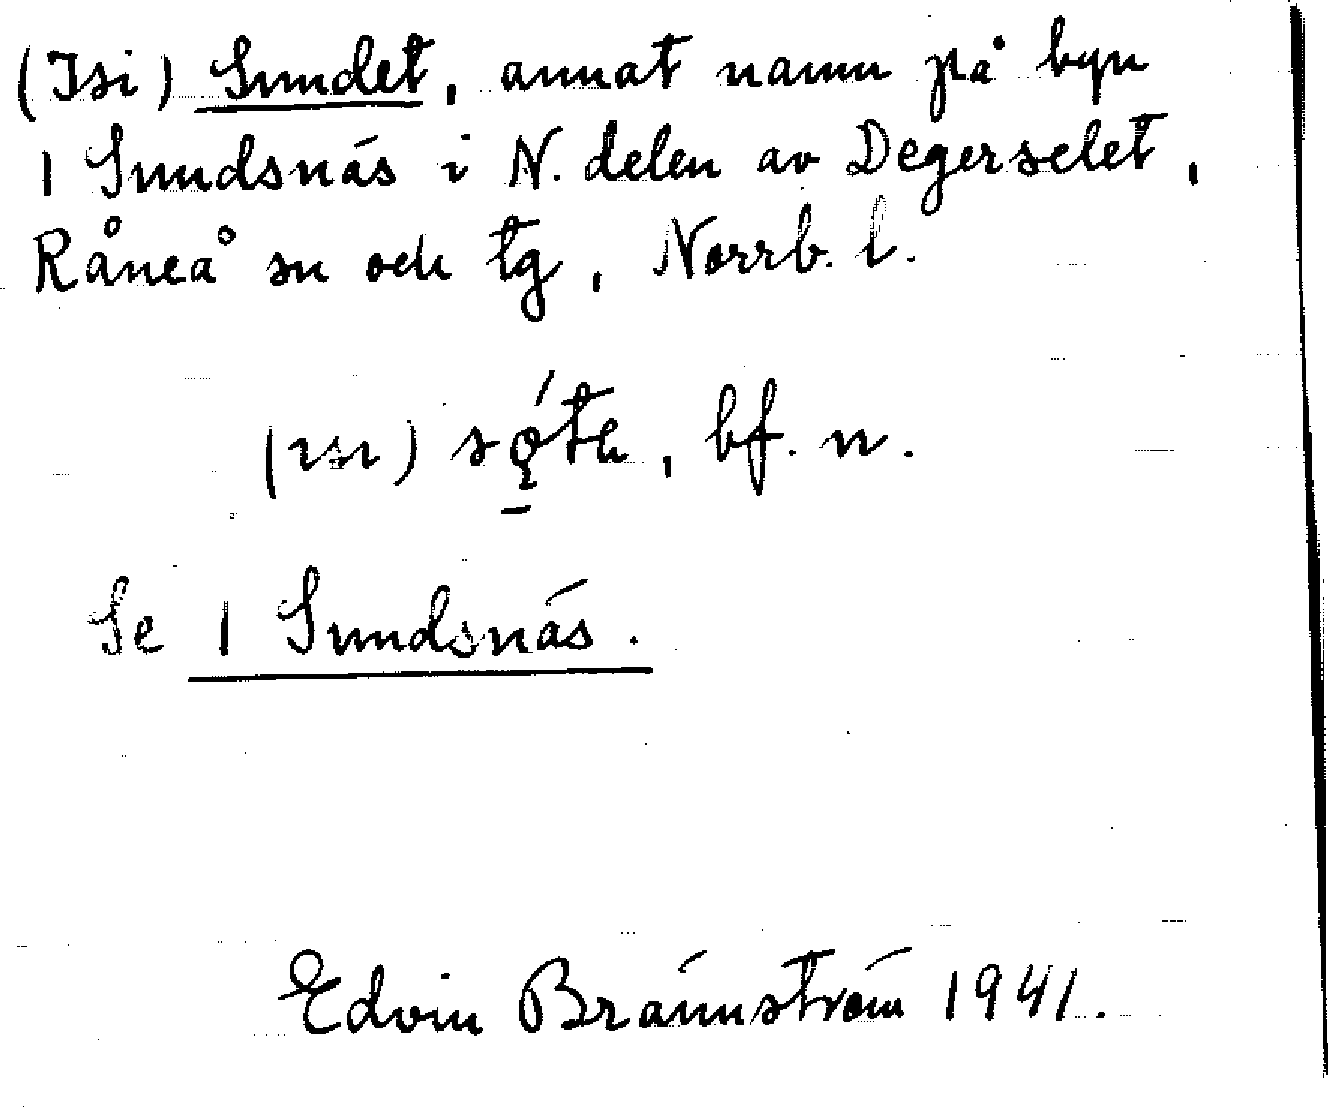 (Isi) Sundet, annat namn på byn
1 Sundsnäs i N. delen av Degerselet,
Råneå sn och tg, Norrb. l.
(ısı) , bf. n.
Se 1 Sundsnäs.
Edvin Brännström 1941.